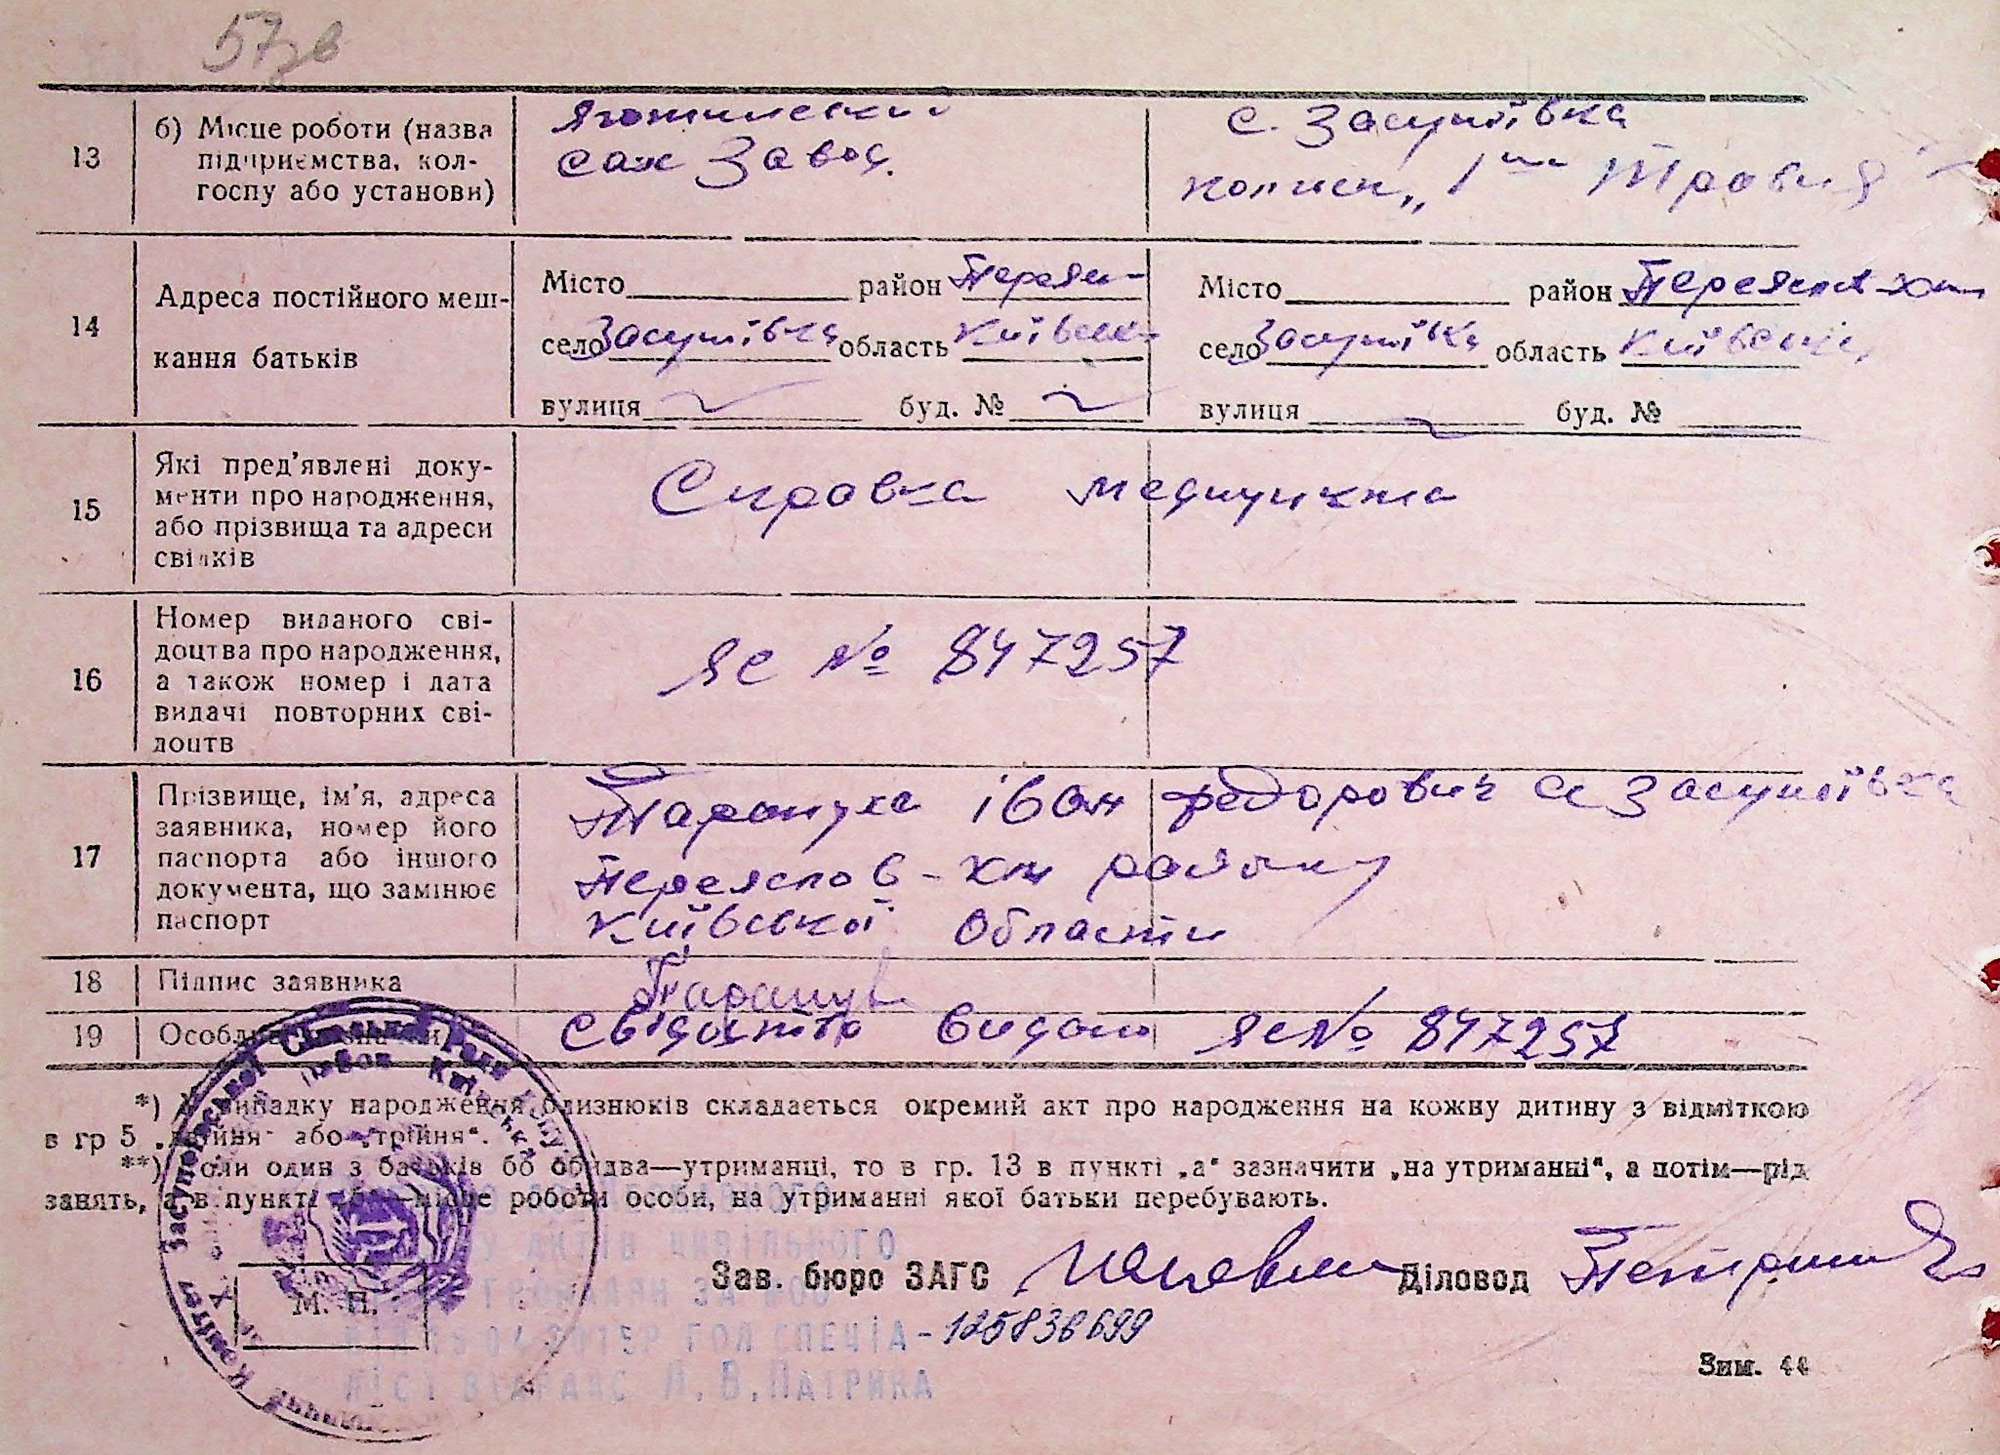 57зв
13
б) Місце роботи (назва підприємства, колгоспу або установи)
Яготинський
сах Завод.
с. Засупоївка
колгосп „1го Травня"
14
Адреса постійного мешкання батьків
Місто район Переяс-
село Засупоївка область Київськ-
вулиця буд. №
Місто район Переяслав-Хм
село Засупоївка область Київськ
вулиця буд. №
15
Які пред'явлені документи про народження, або прізвища та адреси свідків
Справка медична
16
Номер виданого свідоцтва про народження, а також номер і дата видачі повторних свідоцтв
ЯС № 847257
17
Прізвище, ім'я, адреса заявника, номер його паспорта або іншого документа, що замінює паспорт
Тарануха Іван Федорович с Засупоївка
Переяслов-Хм району
Київської Области
18
Підпис заявника
Таранух
19
Свідоцтво видано ЯС № 847257
*) У випадку народження близнюків складається окремий акт про народження на кожну дитину з відміткою
в гр 5 „двійня" або „трійня".
**) Коли один з батьків бо обидва—утриманці, то в гр. 13 в пункті „а" зазначити „на утриманні", а потім—рід
занять, а в пункті —місце роботи особи, на утриманні якої батьки перебувають.
Зав. бюро ЗАГС
Діловод
М. П.
АКТІВ ЦИВІЛЬНОГО
ГРОМАДЯН ЗА
ГОЛ СПЕЦІА-
ЛІСТ ВІДРАЦС Л.В.ПАТРИКА
Зим. 44